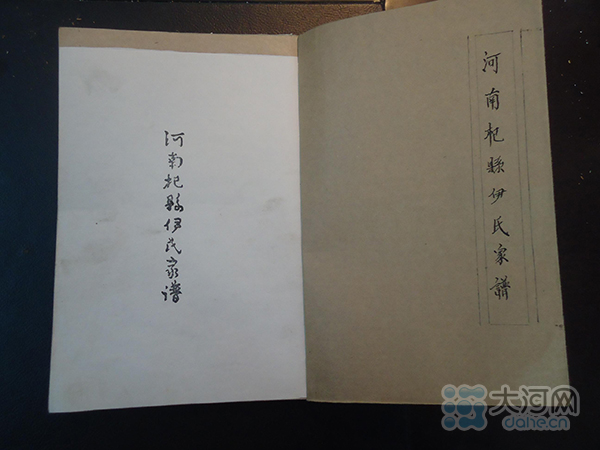 河南杞縣伊氏家譜
河南杞縣伊氏家谱
大河网
dahe.cn